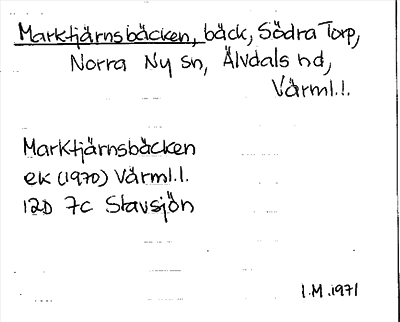 Marktjärnsbäcken, bäck, Södra Torp,
Norra Ny sn, Älvdals hd,
Värml.l.
Marktjärnsbäcken
ek (1970) Värml.l.
12D 7c Stavsjön
I.M. 1971